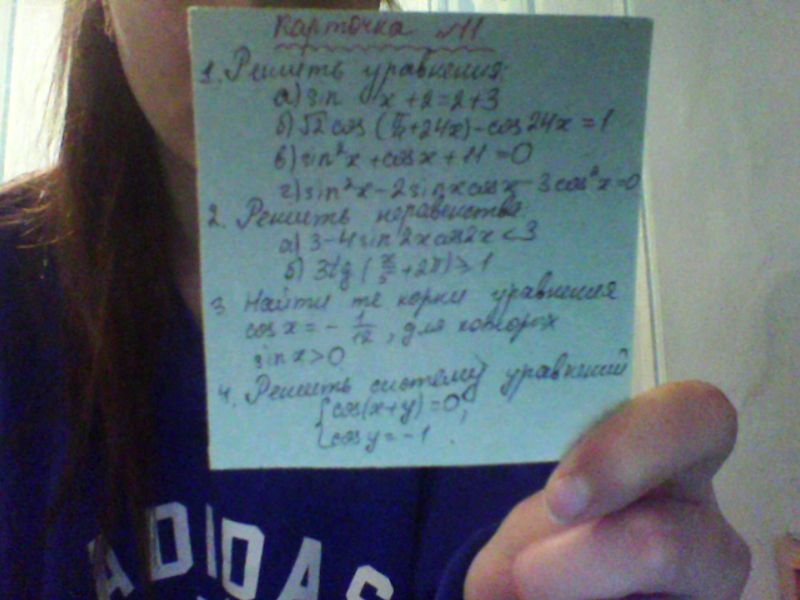 Карточка №11
1. Решить уравнения:
а) sin x + 2 = 2 + 3
б) √2 cos (π/4 + 24x) - cos 24x = 1
в) sin²x + cos x + 11 = 0
г) sin²x - 2 sin x cos x - 3 cos²x = 0
2. Решить неравенства:
а) 3 - 4 sin 2x cos 2x < 3
б) 3tg (x/3 + 2π) ≥ 1
3. Найти те корни уравнения
cos x = - 1/√2, для которых
sin x > 0
4. Решить систему уравнений
{cos(x+y) = 0,
{cos y = -1.
ADIDAS